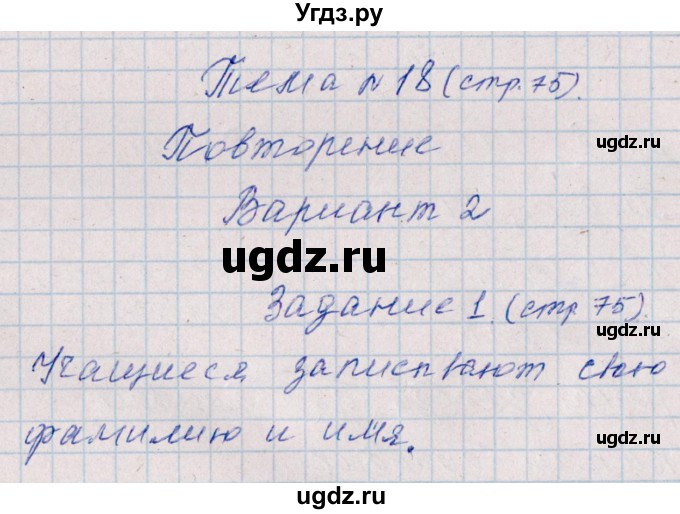 Угдз.ру
Тема №18 (стр. 75).
Повторение
ugdz.ru
Вариант 2
ugdz.ru
ugdz.ru
Задание 1. (стр 75).
ugdz.ru
Учащиеся записывают свою
ugdz.ru
фамилию и имя.
ugdz.ru
ugdz.ru